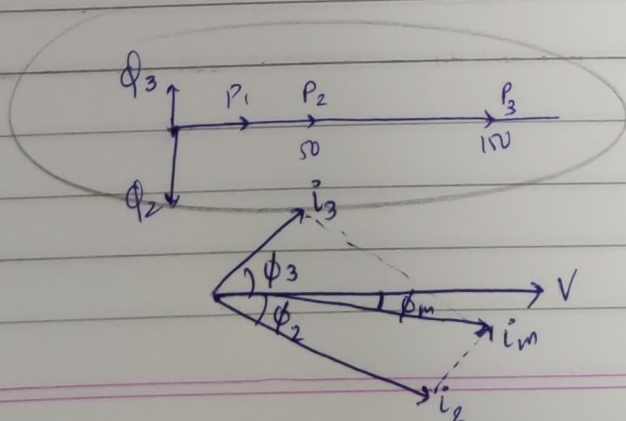 Φ3
P1 P2 P3
50 150
Φ2
i3
ϕ3
V
ϕm
ϕ2
im
i2